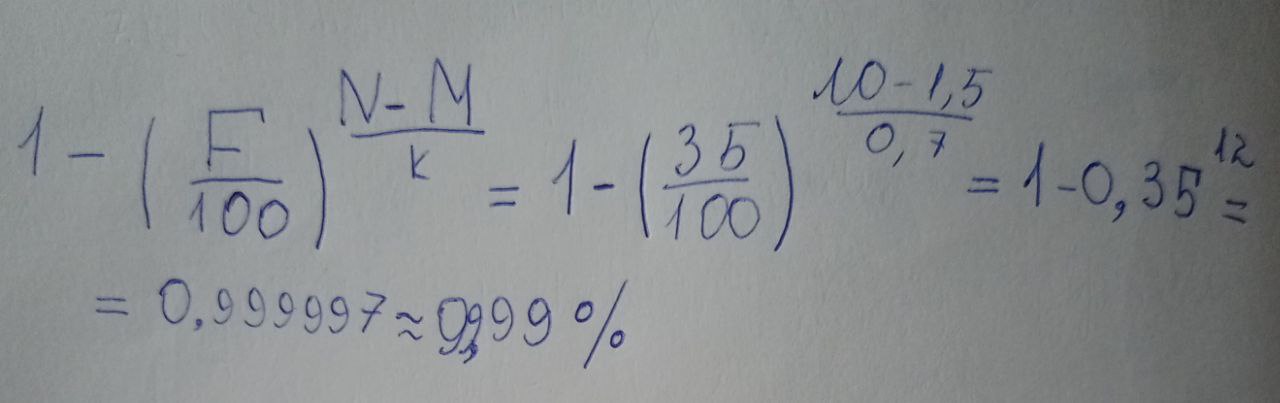 1 - (F/100)^((N-M)/k) = 1 - (35/100)^((10-1,5)/0,7) = 1-0,35^12 =
= 0,999997 ≈ 99,99 %